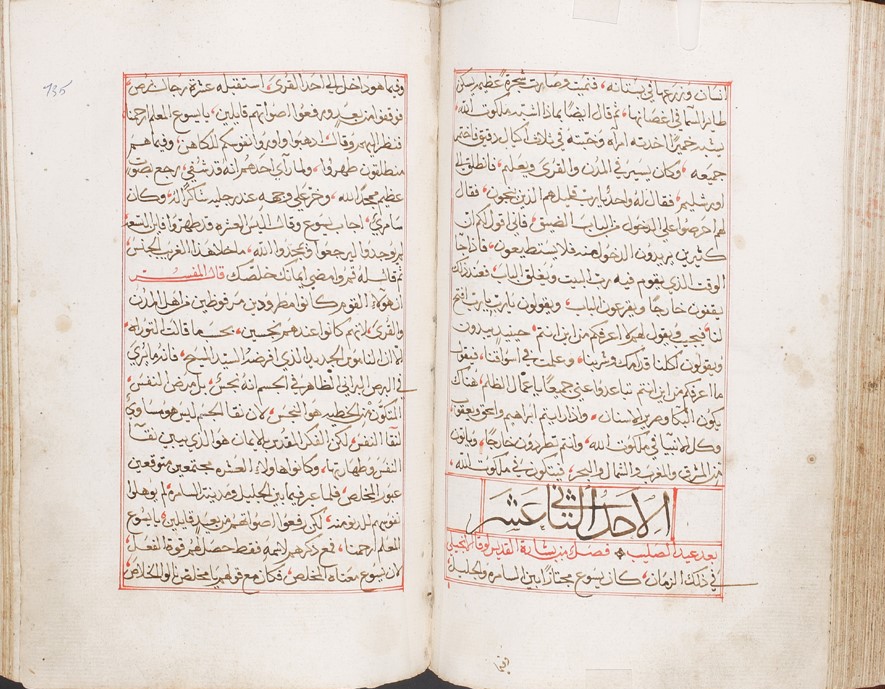 انسان وزرعها في بستانه، فنبتت وصارت شجرة عظيمه وسكن
طاير السما في اغصانها، ثم قال ايضًا بماذا اشبه ملكوت الله،
يشبه خميرًا اخذته امرأه وخبته في ثلاث اكيال دقيق فاختمر
جميعه، وكان يسير في المدن والقرى ويعلم، فانطلق الى
اورشليم، فقال له واحدٌ يا رب قليل هم الذين ينجون، فقال
لهم احرصوا على الدخول من الباب الضيق، فاني اقول لكم ان
كثيرين يريدون الدخول منه فلا يستطيعون، فاذا جا
الوقت الذي يقوم فيه رب البيت ويغلق الباب، فعند ذلك
يقفون خارجًا ويقرعون الباب، ويقولون يا رب يا رب افتح
لنا فيجيب ويقول لهم لا اعرفكم من اين انتم، حينيدٍ يبدون
ويقولون اكلنا قدامك وشربنا، وعلمت في اسواقنا، فيقول
ما اعرفكم من اين انتم تباعدوا عني جميعًا يا عمال الظلم، هناك
يكون البكا وصرير الاسنان، واذا رايتم ابراهيم واسحق ويعقوب
وكل الانبيا في ملكوت الله، وانتم تطردون خارجًا، وياتون
من المشرق والمغرب والشمال والبحر، فيتكون في ملكوت الله
الاحد الثاني عشر
بعد عيد الصليب فصل من بشارة القديس لوقا الانجيلي
في ذلك الزمان، كان يسوع مجتازًا بين السامره والجليل
وفيما
135
وفيما هو داخل الى احد القرى، استقبله عشرة رجال برص
فوقفوا من بعيدٍ ورفعوا اصواتهم قايلين، يا يسوع المعلم ارحمنا
فنظر اليهم وقال اذهبوا واوروا انفوسكم للكاهن، وفيما هم
منطلقون طهروا، ولما راى احدهم انه قد شفي، رجع بصوتٍ
عظيم ممجدًا لله، وخر على وجهه عند رجليه شاكرًا له، وكان
سامري، اجاب يسوع وقال اليس العشره قد طهروا فاين التسعه
لم يوجدوا ليرجعوا ويمجدوا الله، ما خلا هذا الغريب الجنس،
ثم قال له قم وامضي ايمانك خلصك، قال المفسر
ان هولاء القوم كانوا مطرودين مرفوضين من اهل المدن
والقرى، لانهم كانوا عندهم نجسين، بحسب ما قالت التوراه،
لان الناموس الجديد الذي افرضه السيد المسيح، فانه ما يرى
في البرص البراني الظاهر في الجسم انه نجس، بل مرض النفس،
المتكون من الخطيه هو النجس، لان نقا الجسم ليس هو مساويًا
لنقا النفس، لكن الفكر المقدس بالايمان هو الذي يبين نقا
النفس وطهارتها، وكانوا هاولاء العشره مجتمعين متوقعين
عبور المخلص، فلما عبر فيما بين الجليل ومدينة السامره لم يوهلوا
نفوسهم للدنو منه، لكن رفعوا اصواتهم من بعيدٍ قايلين، يا يسوع
المعلم ارحمنا، فعند ذكرهم لاسمه فقط حصل لهم قوة الفعل،
لان يسوع معناه المخلص، فكان مع قولهم يا مخلص نالوا الخلاص